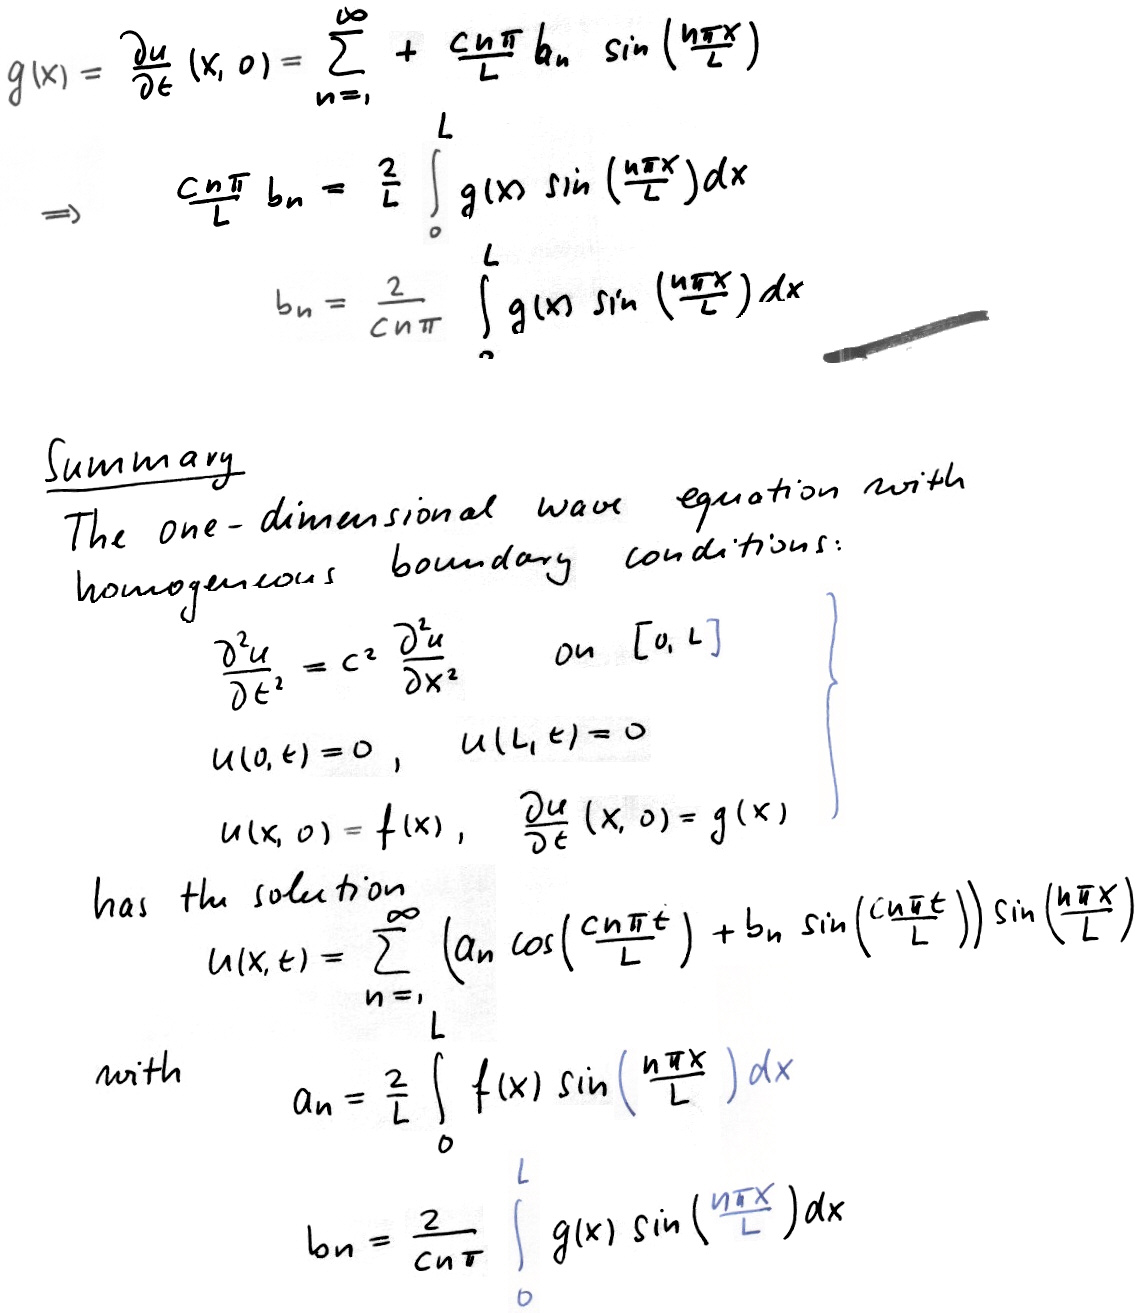 g(x) = ∂u/∂t (x, 0) = ∑_{n=1}^{∞} + cnπ/L bn sin(nπx/L)
⇒ cnπ/L bn = 2/L ∫_0^L g(x) sin(nπx/L) dx
bn = 2/cnπ ∫_0^L g(x) sin(nπx/L) dx
Summary
The one-dimensional wave equation with
homogeneous boundary conditions:
∂²u/∂t² = c² ∂²u/∂x² on [0, L]
u(0, t) = 0, u(L, t) = 0
u(x, 0) = f(x), ∂u/∂t (x, 0) = g(x)
has the solution
u(x, t) = ∑_{n=1}^{∞} (an cos(cnπt/L) + bn sin(cnπt/L)) sin(nπx/L)
with an = 2/L ∫_0^L f(x) sin(nπx/L) dx
bn = 2/cnπ ∫_0^L g(x) sin(nπx/L) dx